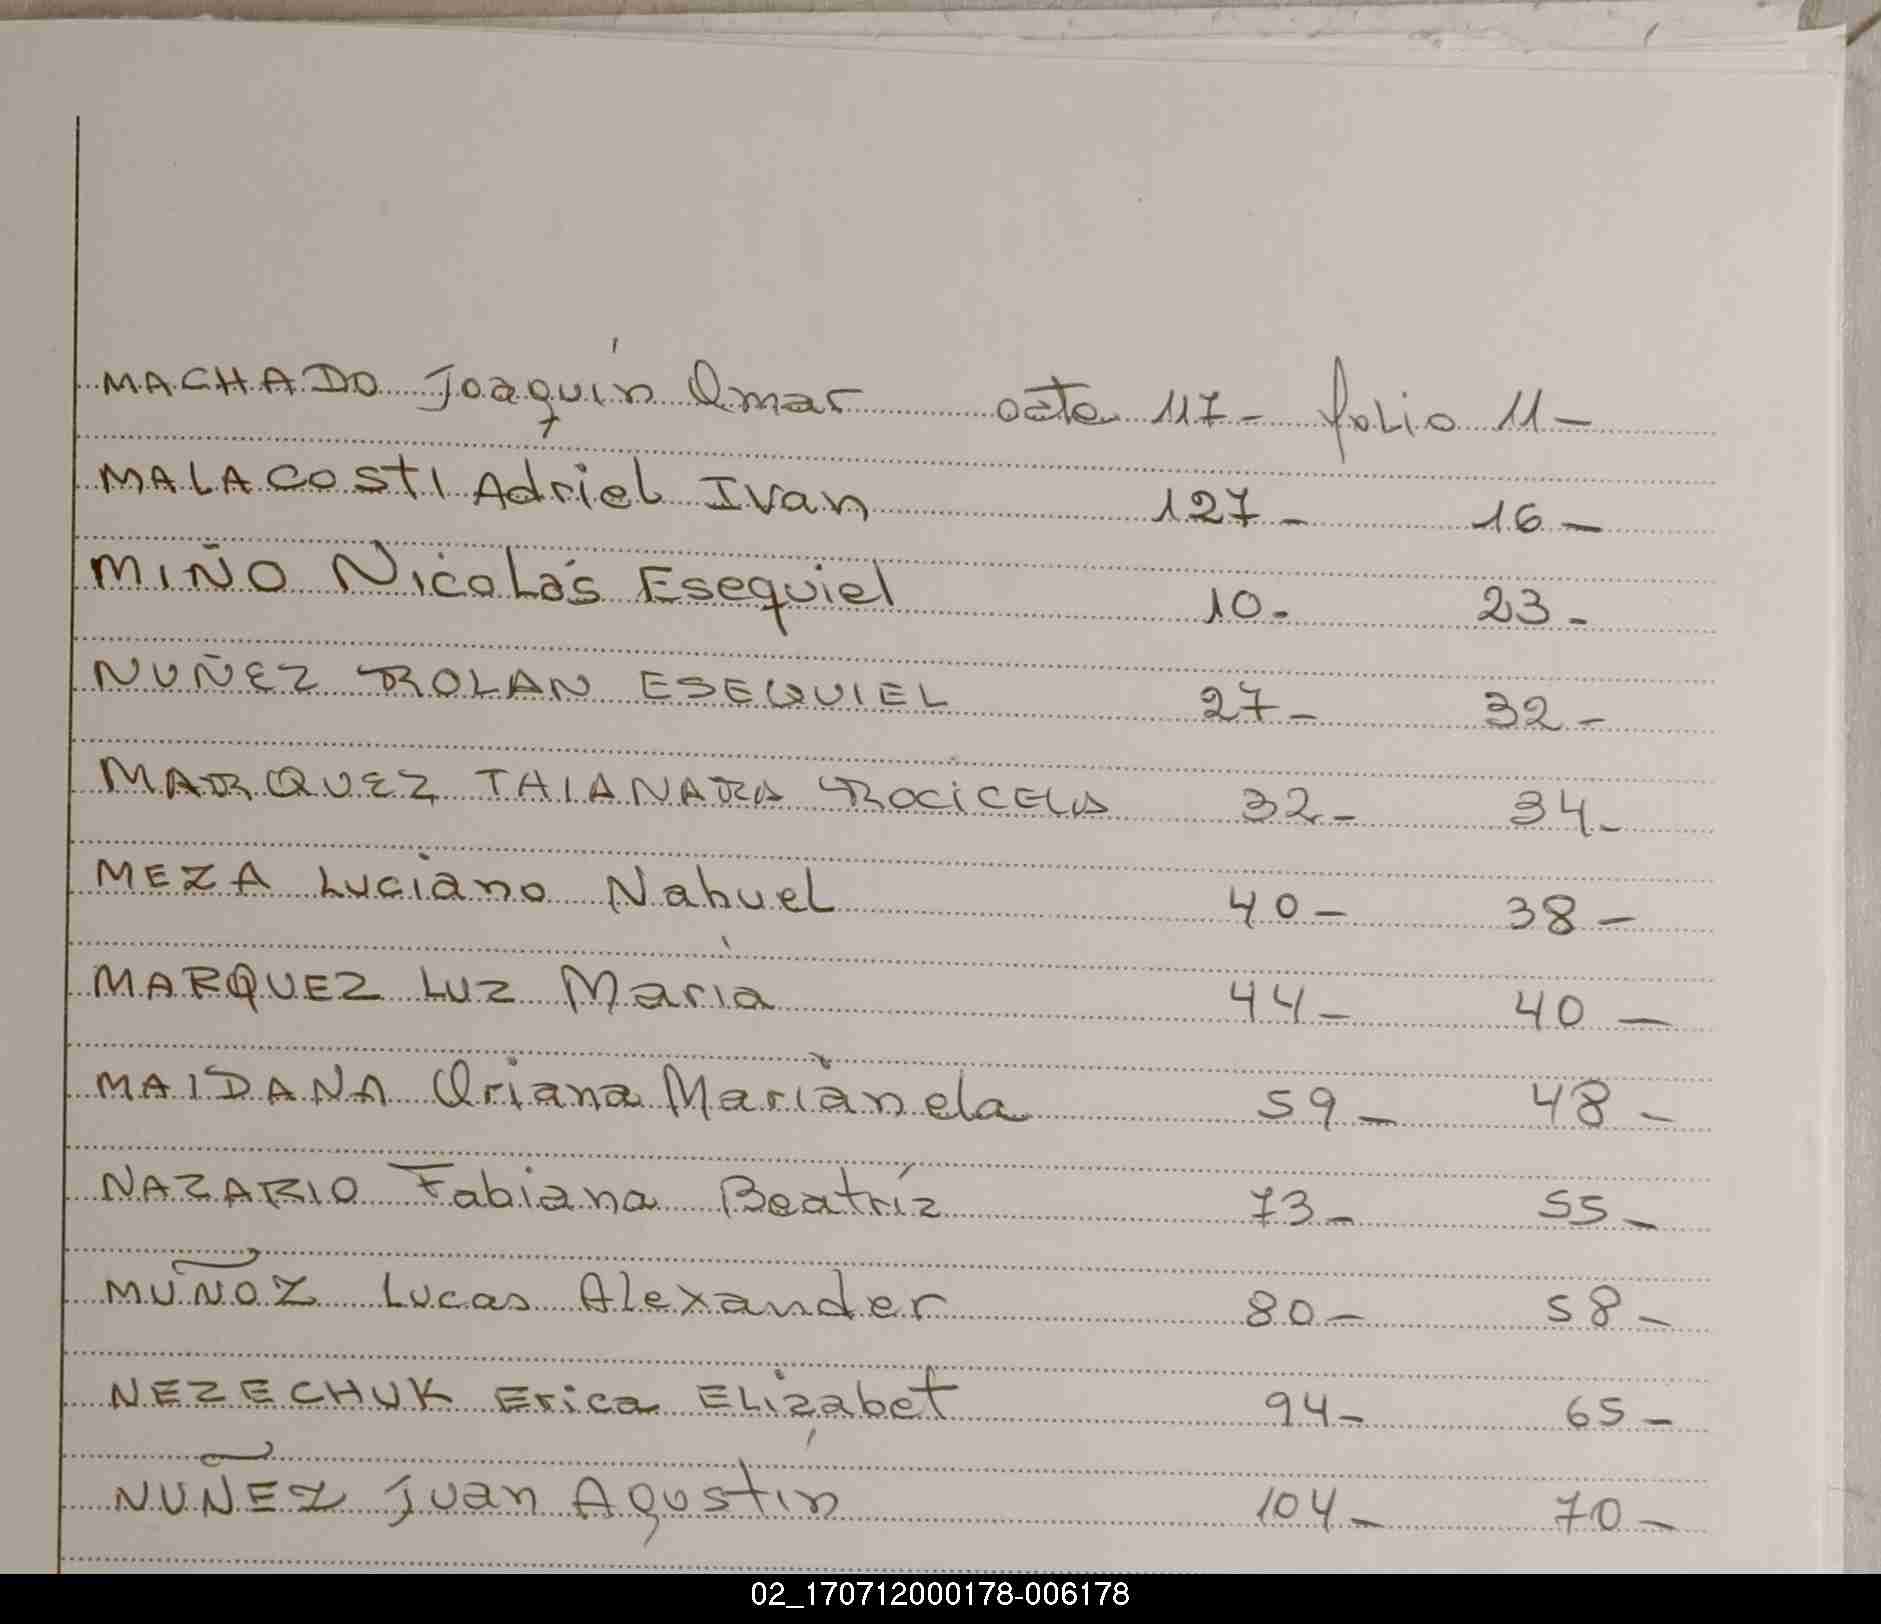 MACHADO Joaquín Omar acta 117- folio 11-
MALACOSTI Adriel Ivan 127- 16-
MIÑO Nicolás Esequiel 10- 23-
NUÑEZ ROLAN ESEQUIEL 27- 32-
MARQUEZ THIANARA ROCICELA 32- 34-
MEZA Luciano Nahuel 40- 38-
MARQUEZ LUZ María 44- 40-
MAIDANA Oriana Marianela 59- 48-
NAZARIO Fabiana Beatríz 73- 55-
MUÑOZ Lucas Alexander 80- 58-
NEZECHUK Erica Elizabet 94- 65-
NUÑEZ Juan Agustín 104- 70-
02_170712000178-006178